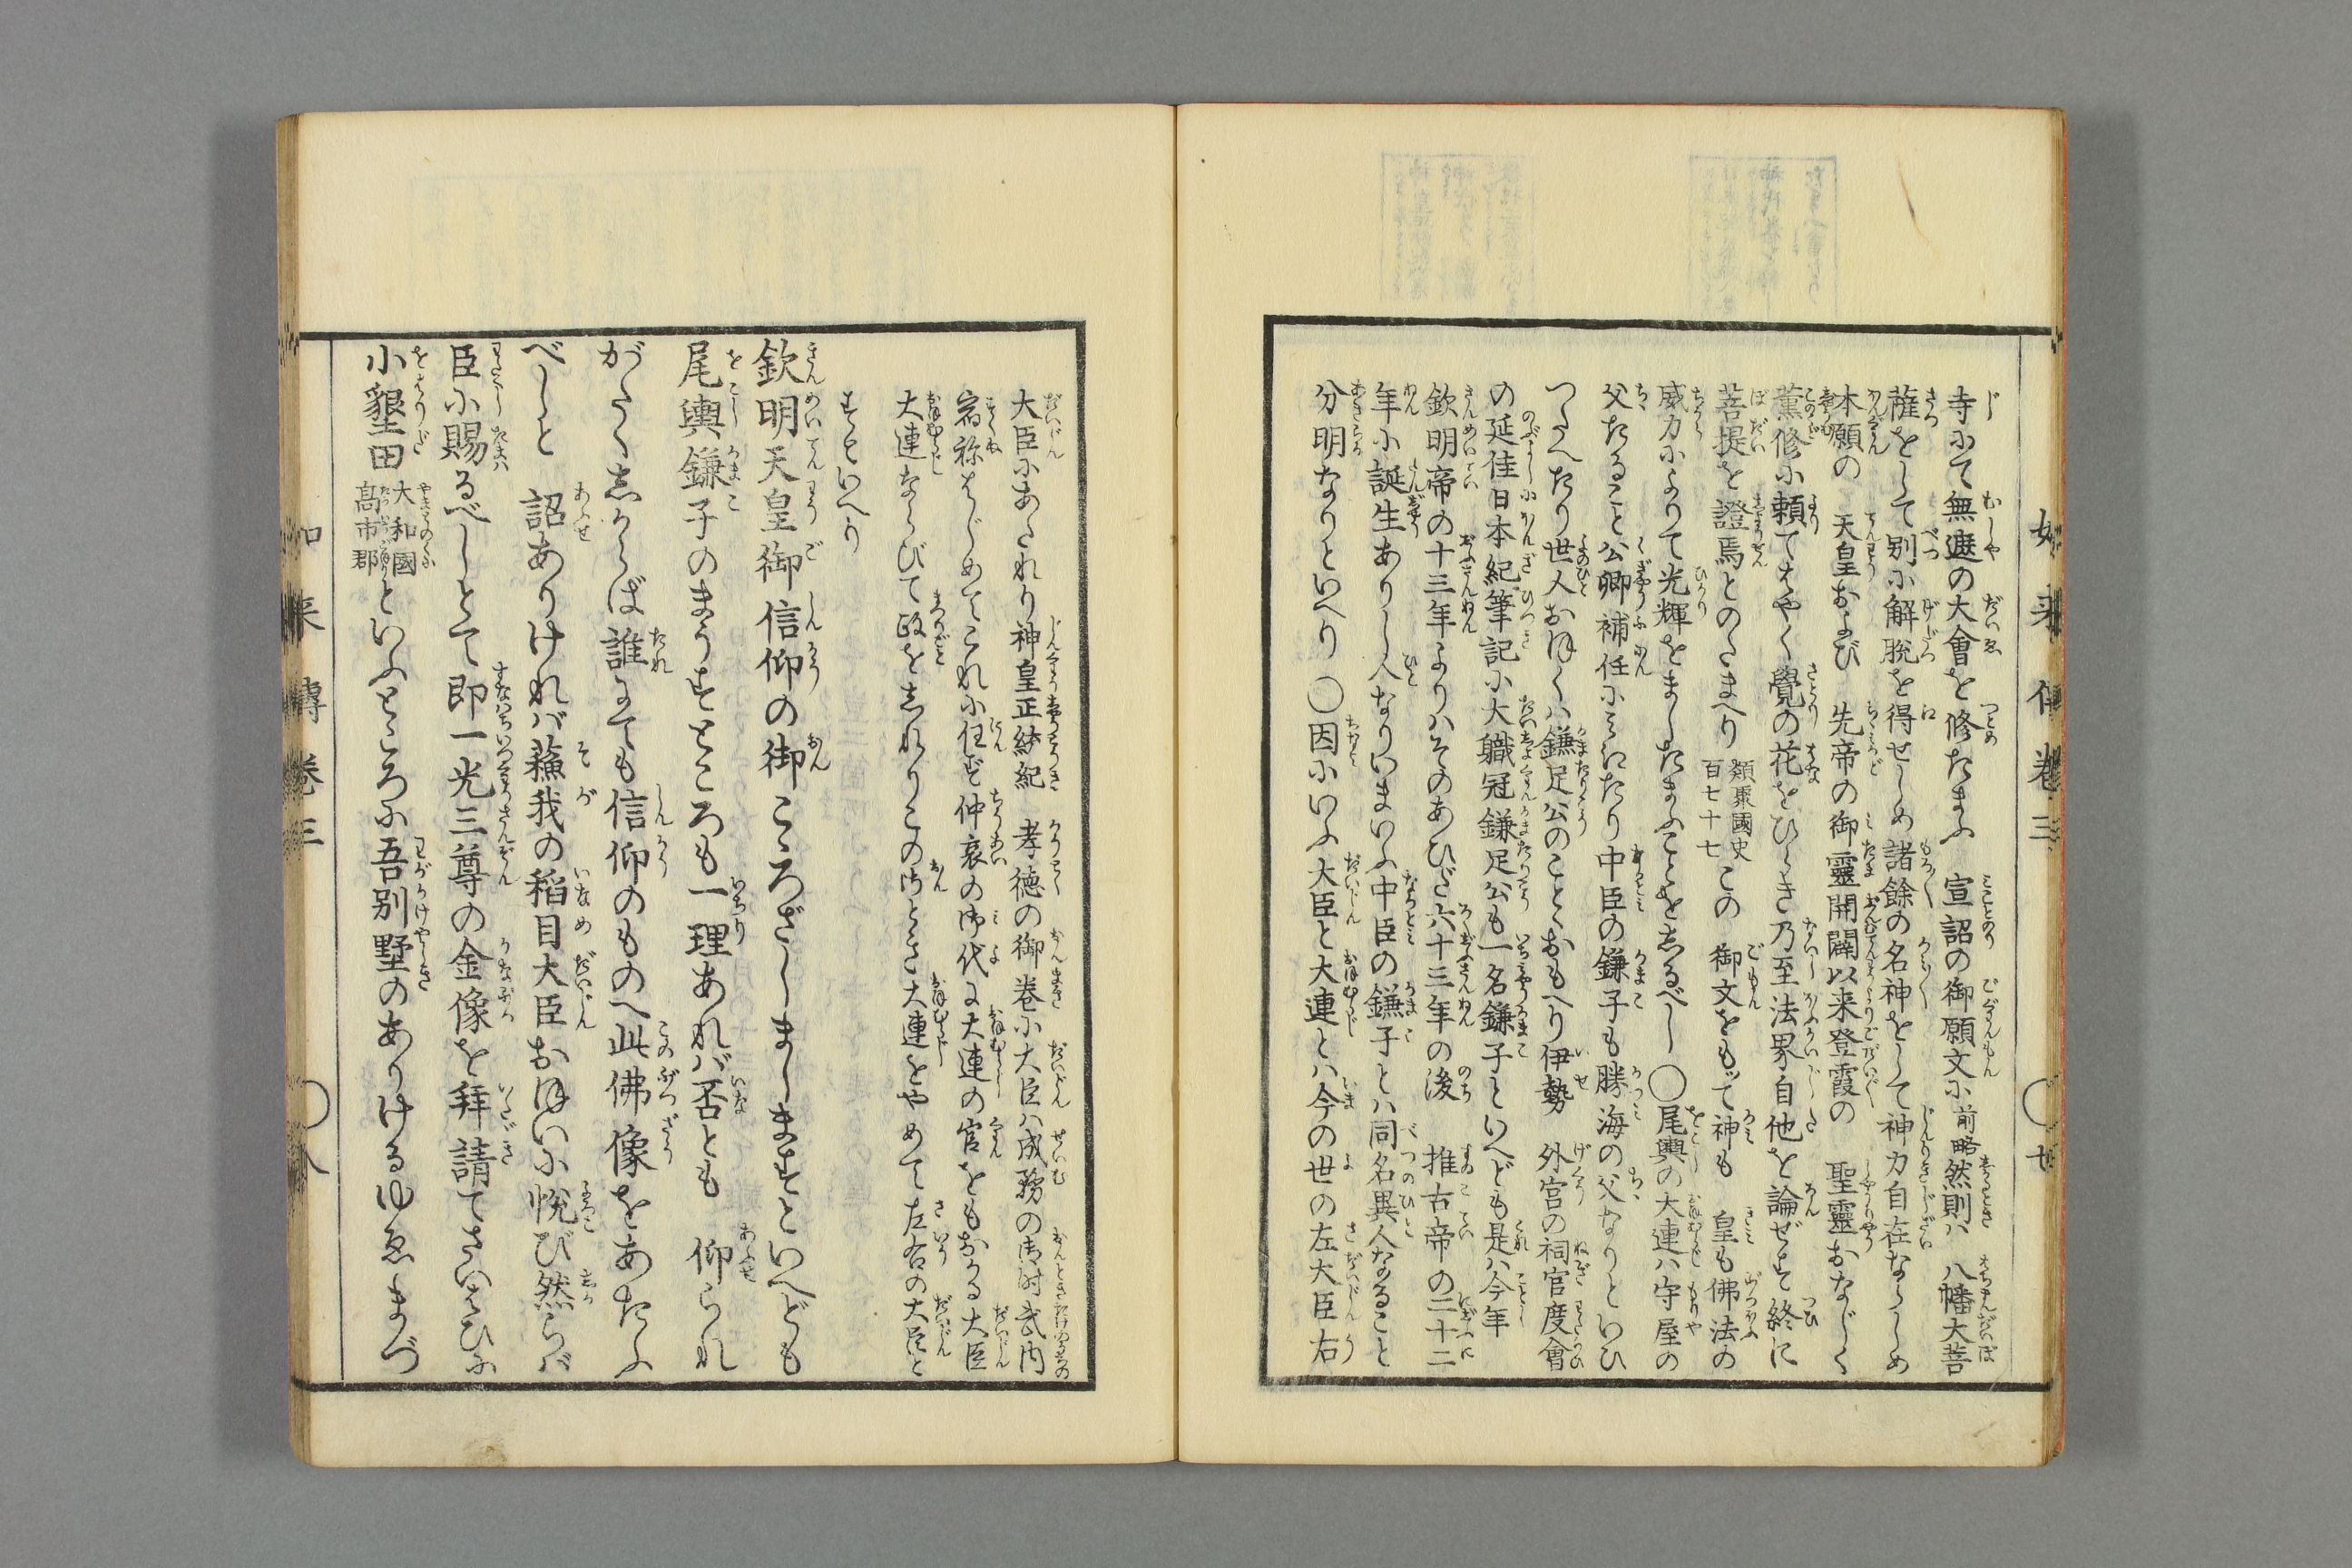 如来傳卷三 〇廿
寺にて無遮の大會を修たまふ 宣詔の御願文に前略然則ハ 八幡大菩
薩をして別に解脱を得せしめ諸餘の名神をして神力自在ならしめ
本願の 天皇および 先帝の御靈開闢以来登霞の 聖靈おなじく
薫修に頼てはやく覺の花をひらき乃至法界自他を論ぜず終に
菩提を證焉とのたまへり類聚國史百七十七この 御文をもて神も 皇も佛法の
威力によりて光輝をましたまふことをしるべし〇尾輿の大連ハ守屋の
父たること公卿補任にみえたり中臣の鎌子も勝海の父なりといひ
つたへたり世人おほくハ鎌足公のことゝおもへり伊勢 外宮の祠官度會
の延佳日本紀筆記に大職冠鎌足公も一名鎌子といへども是ハ今年
欽明帝の十三年よりハそのあひだ六十三年の後 推古帝の二十二
年に誕生ありし人なりいまいふ中臣の鎌子とハ同名異人なること
分明なりといへり〇因にいふ大臣と大連とハ今の世の左大臣右
大臣にあたれり神皇正統紀 孝徳の御卷に大臣ハ成務の御時武内
宿祢はじめてこれに任ず仲哀の御代に大連の官をもおかる大臣
大連ならびて政をしれりこの御とき大連をやめて左右の大臣と
すといへり
欽明天皇御信仰の御こゝろざしましますといへども
尾輿鎌子のまうすところも一理あれバ否とも 仰られ
がたくしからば誰にても信仰のものへ此佛像をあたふ
べしと 詔ありけれバ蘓我の稲目大臣おほいに悦び然らバ
臣に賜るべしとて即一光三尊の金像を拜請てさいはひに
小墾田大和國高市郡といふところに吾別墅のありけるゆゑまづ
如来傳卷三 〇八